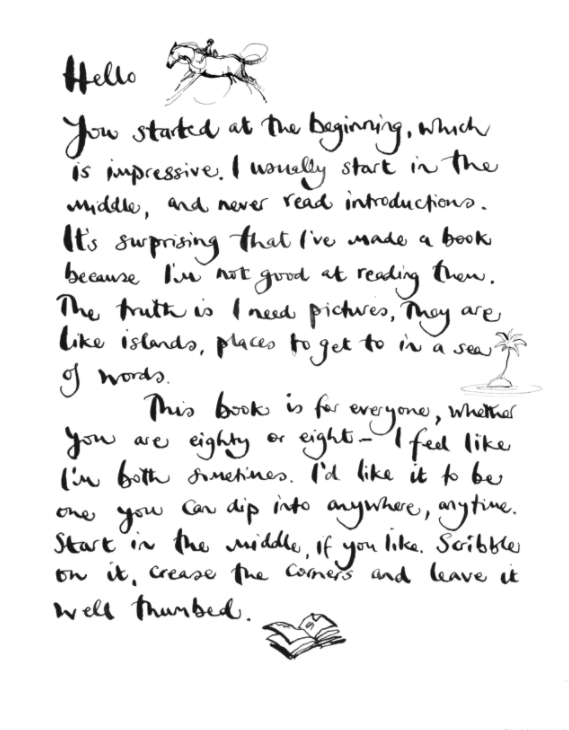 Hello
You started at the beginning, which
is impressive. I usually start in the
middle, and never read introductions.
It's surprising that I've made a book
because I'm not good at reading them.
The truth is I need pictures, They are
like islands, places to get to in a sea
of words.
This book is for everyone, whether
you are eighty or eight – I feel like
I'm both sometimes. I'd like it to be
one you can dip into anywhere, anytime.
Start in the middle, if you like. Scribble
on it, crease the corners and leave it
well thumbed.